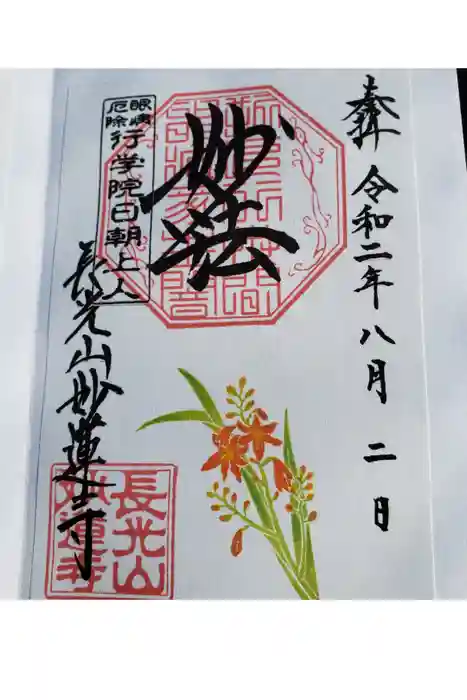 奉拝
令和二年八月二日
妙法
眼病
厄除
行学院日朝上人
長光山妙蓮寺
長光山
妙蓮寺